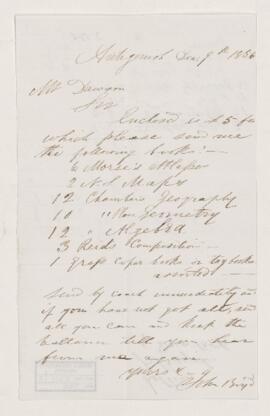 Antigonish Dec 9th 1856
Mr Dawson
Sir
Enclosed is £5 for
which please send me
the following books:—
6 Morse's Atlases
2 N S Maps
12 Chambers Geography
10 " Geometry
12 " Algebra
3 Reids Composition —
1 copy books or toy books
assorted —
send by coach immediately and
if you have not got all, send
all you can and keep the
ballance till you hear
from me again
yours &c
John Boyd